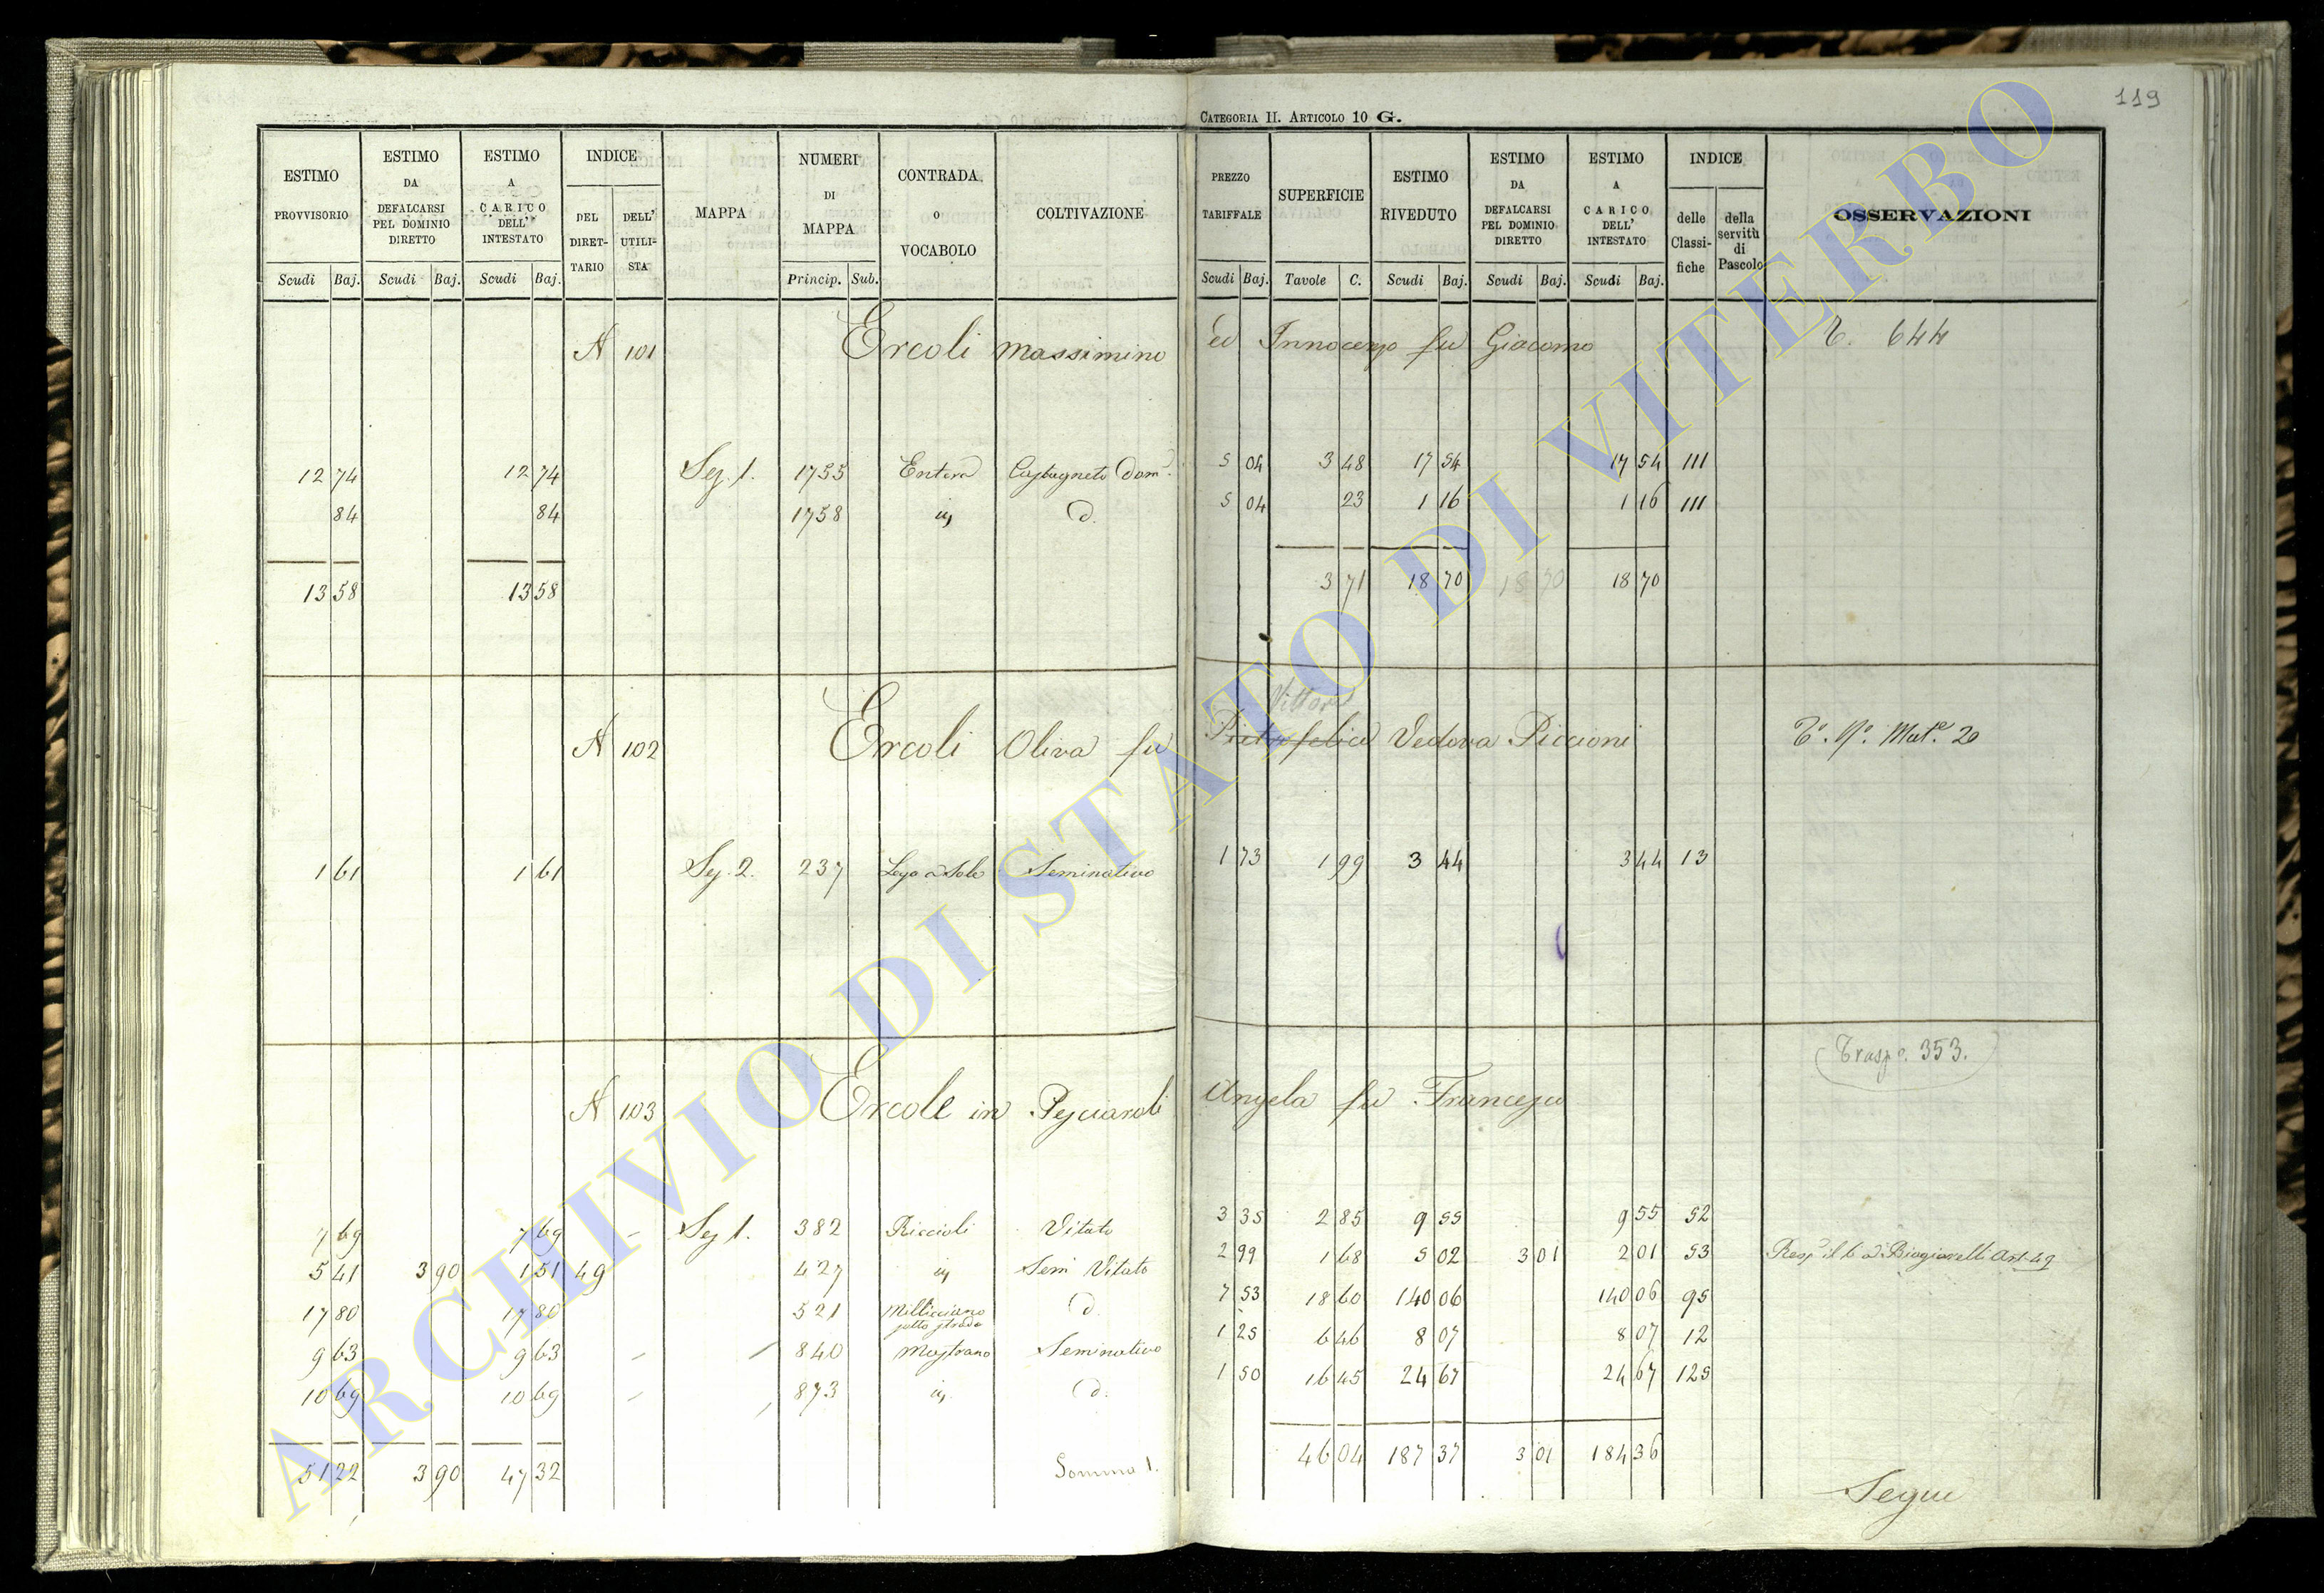 119
CATEGORIA II. ARTICOLO 10 G.
ESTIMO PROVVISORIO Scudi Baj.
ESTIMO DA DEFALCARSI PEL DOMINIO DIRETTO Scudi Baj.
ESTIMO A CARICO DELL' INTESTATO Scudi Baj.
INDICE DEL DIRET-TARIO DELL' UTILI-STA
MAPPA
NUMERI DI MAPPA Princip. Sub.
CONTRADA O VOCABOLO
COLTIVAZIONE
PREZZO TARIFFALE Scudi Baj.
SUPERFICIE Tavole C.
ESTIMO RIVEDUTO Scudi Baj.
ESTIMO DA DEFALCARSI PEL DOMINIO DIRETTO Scudi Baj.
ESTIMO A CARICO DELL' INTESTATO Scudi Baj.
INDICE delle Classi-fiche della servitù di Pascolo
OSSERVAZIONI
A 101 Ercoli Massimino ed Innocenzo fu Giacomo T. 644
12 74 12 74 Sez. 1. 1755 Castagneto Dom. 5 04 3 48 17 54 17 54 111
84 84 1758 id d. 5 04 23 1 16 1 16 111
13 58 13 58 3 71 18 70 18 70 18 70
Vittore
A 102 Ercoli Oliva fu Pietrafelice Vedova Piccioni T. N. Mat. 20
1 61 1 61 Sez. 2. 237 Seminativo 1 73 1 99 3 44 3 44 13
(Trasp. 353.)
A 103 Ercole in Pesciaroli Angela fu Francesco
7 69 7 69 - Sez 1. 382 Riccioli Vitato 3 35 2 85 9 55 9 55 52
5 41 3 90 1 51 49 427 id Sem Vitato 2 99 1 68 5 02 3 01 2 01 53 Resp. il 6 a Biagiarelli Art. 49
17 80 17 80 521 sotto strada d. 7 53 18 60 140 06 140 06 95
9 63 9 63 - 840 Mastrano Seminativo 1 25 6 46 8 07 8 07 12
10 69 10 69 - 873 id d. 1 50 16 45 24 67 24 67 125
51 22 3 90 47 32 Somma 1. 46 04 187 37 3 01 184 36
Segue
ARCHIVIO DI STATO DI VITERBO